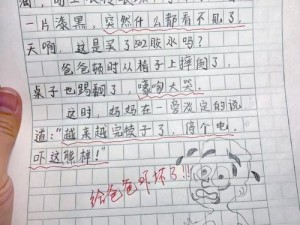 一片漆黑,突然什么都看不见了。
天啊,这是买了502胶水吗?
爸爸顿时从椅子上摔倒了,
桌子也踢翻了,嚎啕大哭。
这时,妈妈在一旁淡定的说
道:"越来越完犊子了,停个电,
吓这熊样!"
给爸爸吓坏了!!!